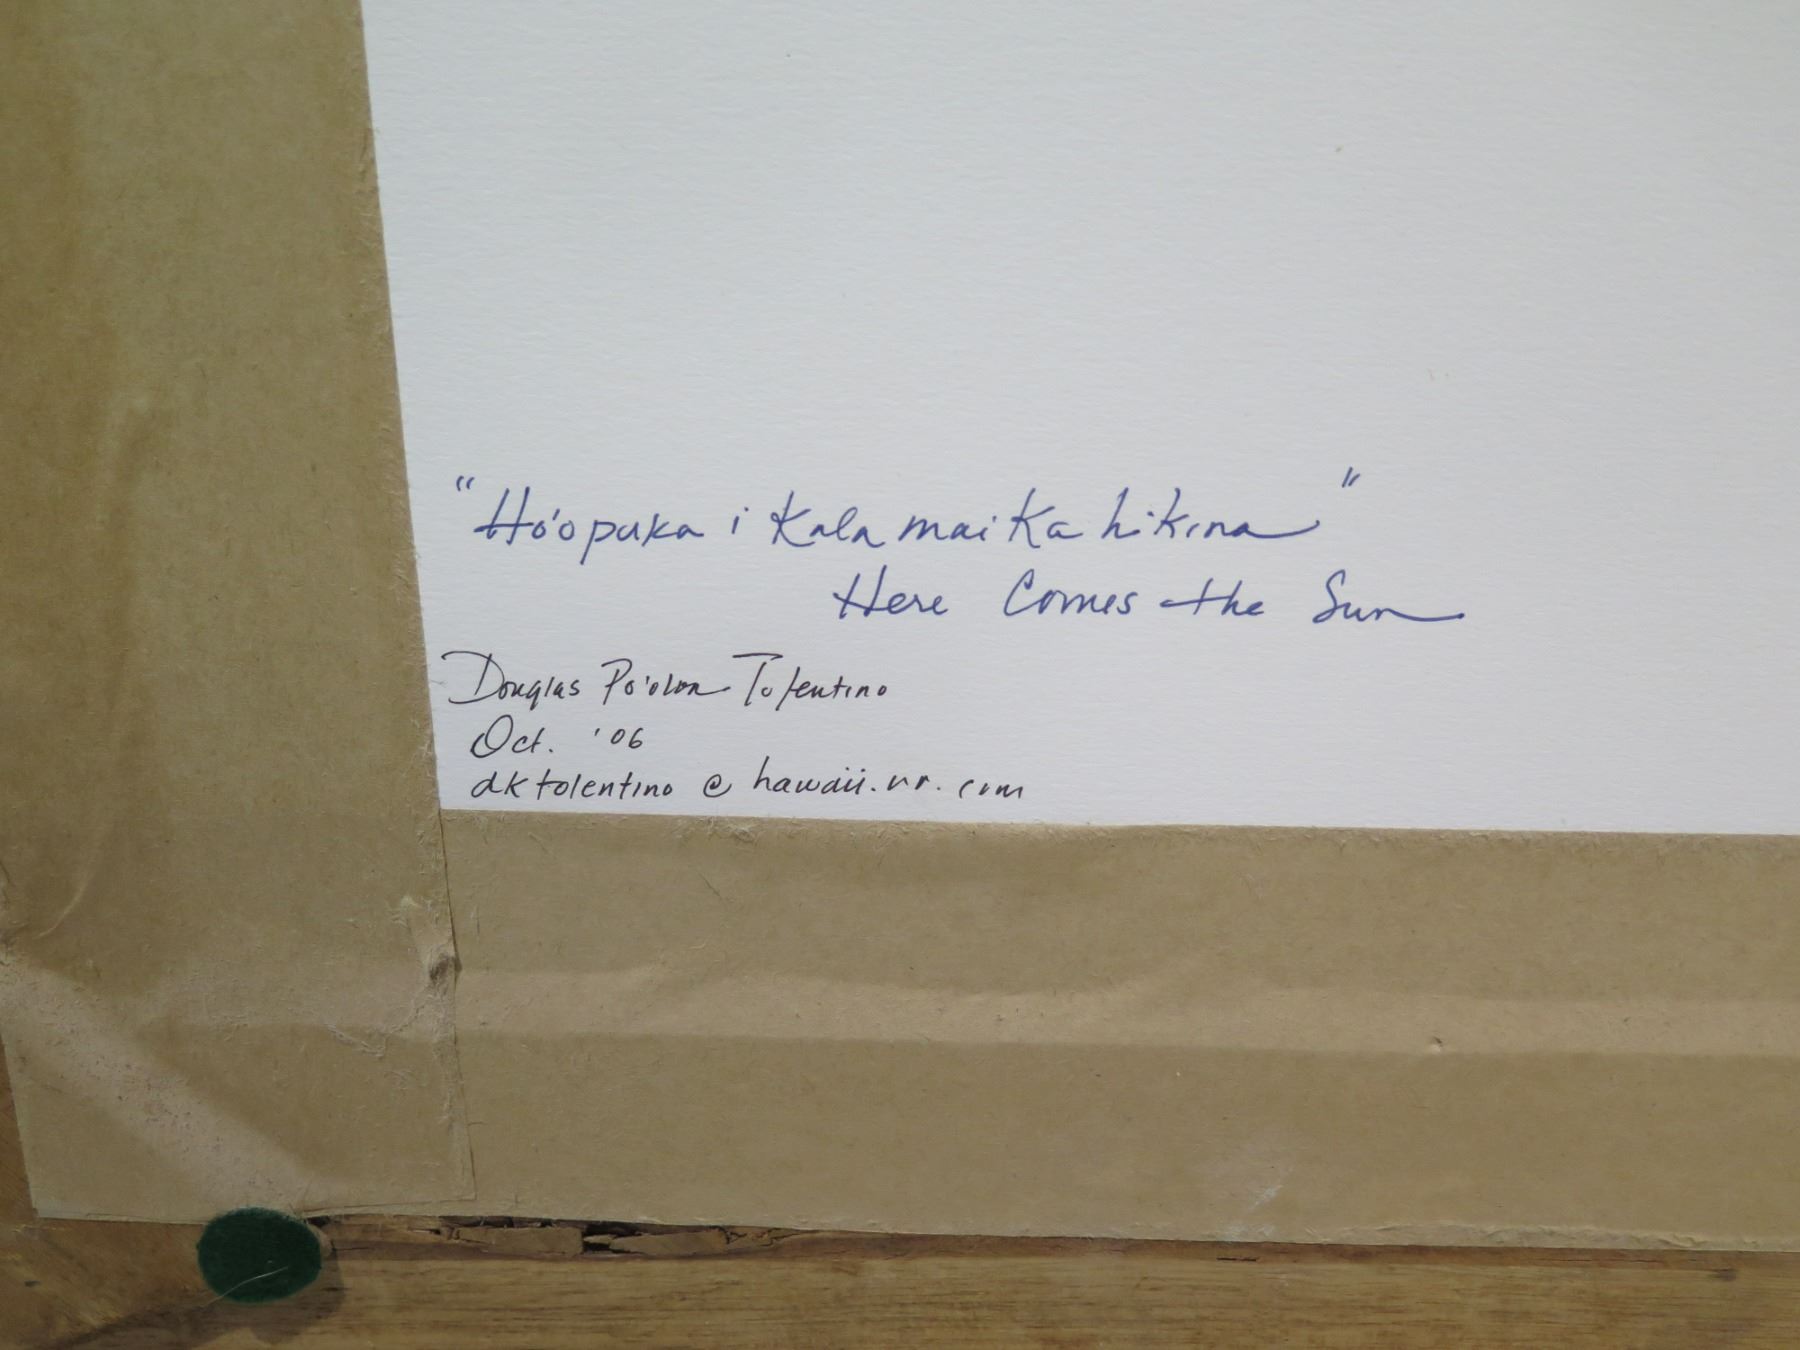 "Ho'opuka i Kala mai Ka hikina"
Here Comes the Sun
Douglas Po'oloa Tolentino
Oct. '06
dktolentino @ hawaii.rr.com